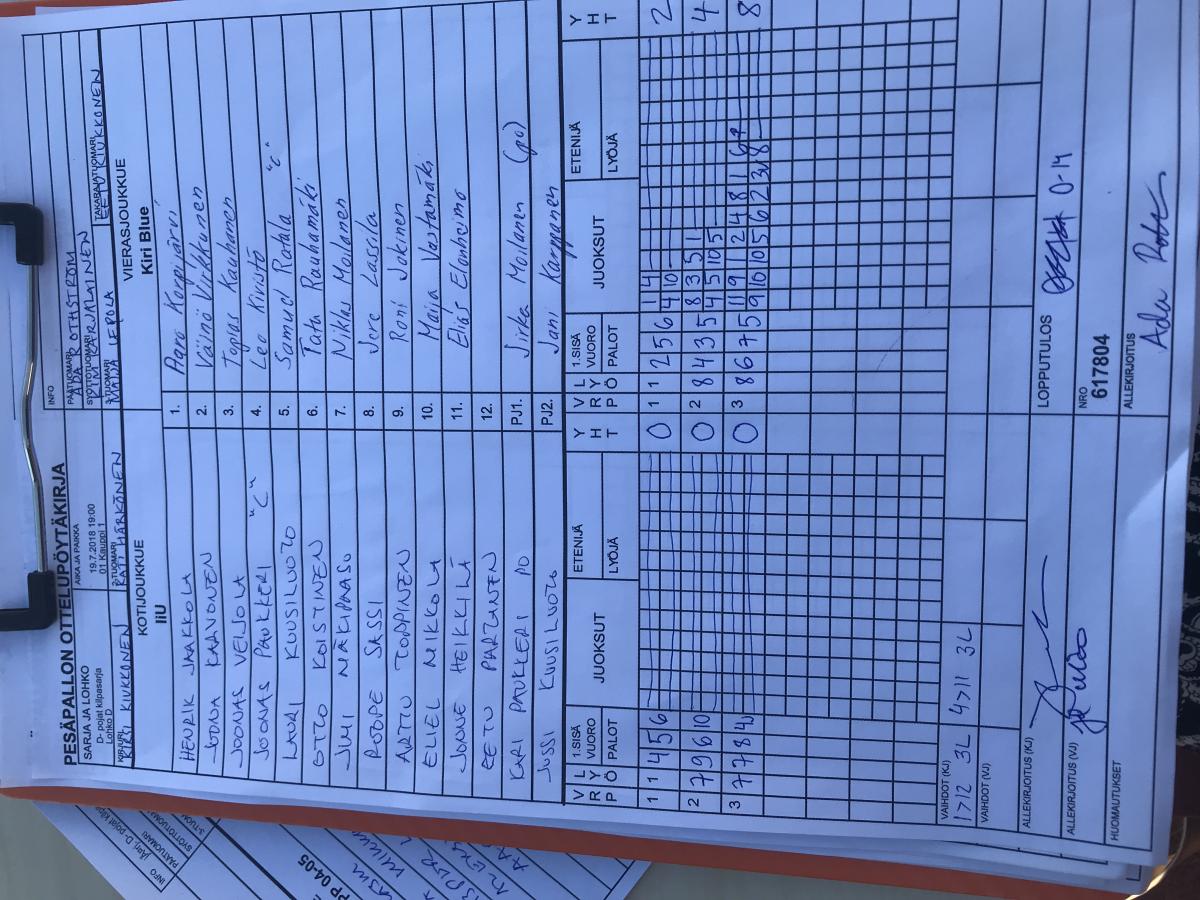 PESÄPALLON OTTELUPÖYTÄKIRJA
INFO
SARJA JA LOHKO
D- pojat kilpasarja
Lohko D
AIKA JA PAIKKA
19.7.2018 19:00
01 Kauppi 1
PÄÄTUOMARI
ADA ROTHSTRÖM
SYÖTTÖTUOMARI
KIM KARJALAINEN
KIRJURI
KIRSI KIUKKONEN
2-TUOMARI
KATI HÄRKÖNEN
3-TUOMARI
MAIJA LEPOLA
TAKARAJATUOMARI
EETU KIUKKONEN
KOTIJOUKKUE
IiU
VIERASJOUKKUE
Kiri Blue
HENRIK JAAKKOLA 1. Aaro Korpijärvi
JOONA KARVONEN 2. Väinö Virkkunen
JOONAS VEIJOLA 3. Topias Kauhanen
JOONAS PAUKKERI "C" 4. Leo Kiristö
LAURI KUUSILUOTO 5. Samuel Ratala "C"
OTTO KOISTINEN 6. Tatu Rauhamäki
JIMI MÄKIPAASO 7. Niklas Moilanen
ROOPE SASSI 8. Jere Lassila
ARTTU TORPPINEN 9. Roni Jokinen
ELIEL MEIKKOLA 10. Maija Vastamäki
JONNE HEIKKILÄ 11. Elias Elonheimo
EETU PARTANEN 12.
KARI PAUKKERI PO PJ1. Jirka Moilanen (po)
JUSSI KUUSILUOTO PJ2. Jani Karppanen
V R L Y Ö 1.SISÄ VUORO PALOT JUOKSUT ETENIJÄ LYÖJÄ Y H T V R L Y Ö 1.SISÄ VUORO PALOT JUOKSUT ETENIJÄ LYÖJÄ Y H T
1 1 4 5 6 0 1 1 2 5 6 1 4 2
4 10
2 7 9 6 10 0 2 8 4 3 5 8 3 5 1 4
4 5 10 5
3 7 7 8 4 0 3 8 6 7 5 11 9 1 2 4 8 1 6 8
9 10 10 5 6 2 3 8
VAIHDOT (KJ)
1>12 3L 4>11 3L
VAIHDOT (VJ)
ALLEKIRJOITUS (KJ)
LOPPUTULOS 0-14
ALLEKIRJOITUS (VJ)
NRO
617804
HUOMAUTUKSET
ALLEKIRJOITUS
INFO
PÄÄTUOMARI
SYÖTTÖTUOMARI
PP 04-05